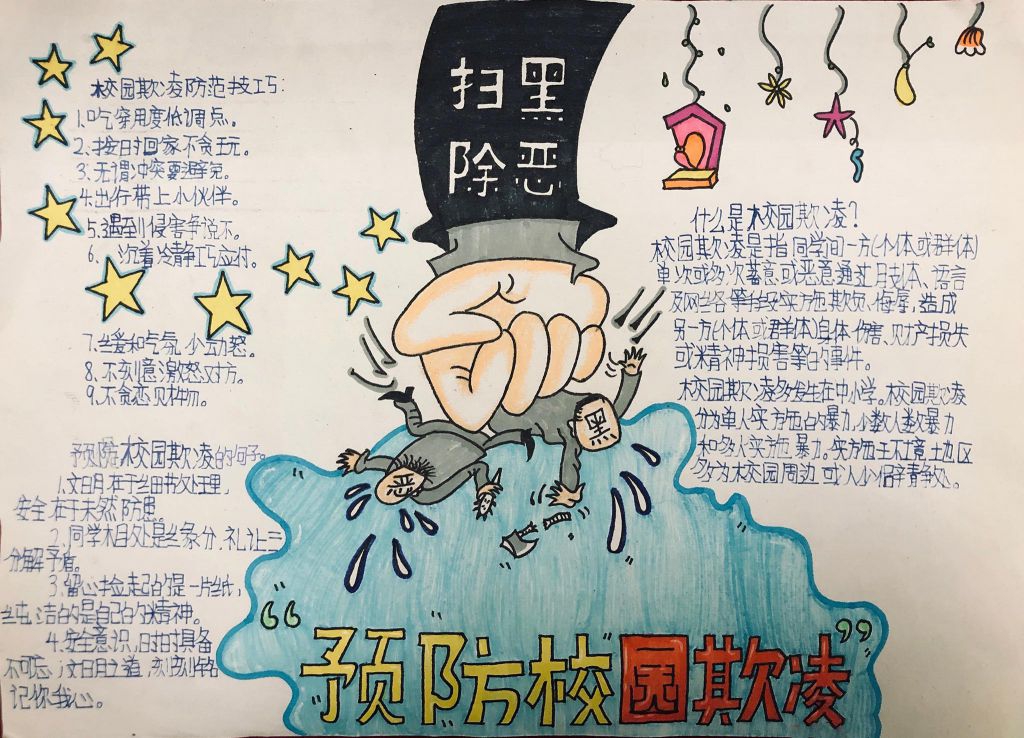 校园欺凌防范技巧:
1.吃穿用度低调点。
2.按时回家不贪玩。
3.无谓冲突要避免。
4.出行带上小伙伴。
5.遇到侵害争说不。
6、沉着冷静巧应付。
7.丝爱和气氛少动怒。
8.不刻意激怒对方。
9.不贪恋见物。
预防校园欺凌的句子。
1.文明在于细节处理,
安全在于未然防患
2.同学相处是缘分,礼让三
分解矛盾。
3.留心捡起的是一片纸,
纯洁的是自己的精神。
4.安全意识,时时具备
不可忘;文明之道,刻刻铭
记你我心。
扫黑
除恶
黑
恶
什么是校园欺凌?
校园欺凌是指同学间一方(个体或群体)
单次或多次蓄意或恶意通过肢体、语言
及网络等手段实施欺负、侮辱,造成
另一方(个体或群体)身体伤害、财产损失
或精神损害等的事件。
校园欺凌多发生在中小学。校园欺凌
分为单人实施的暴力,少数人数暴力
和多人实施暴力。实施环境地区
多为校园周边或人少僻静处。
“预防校园欺凌”